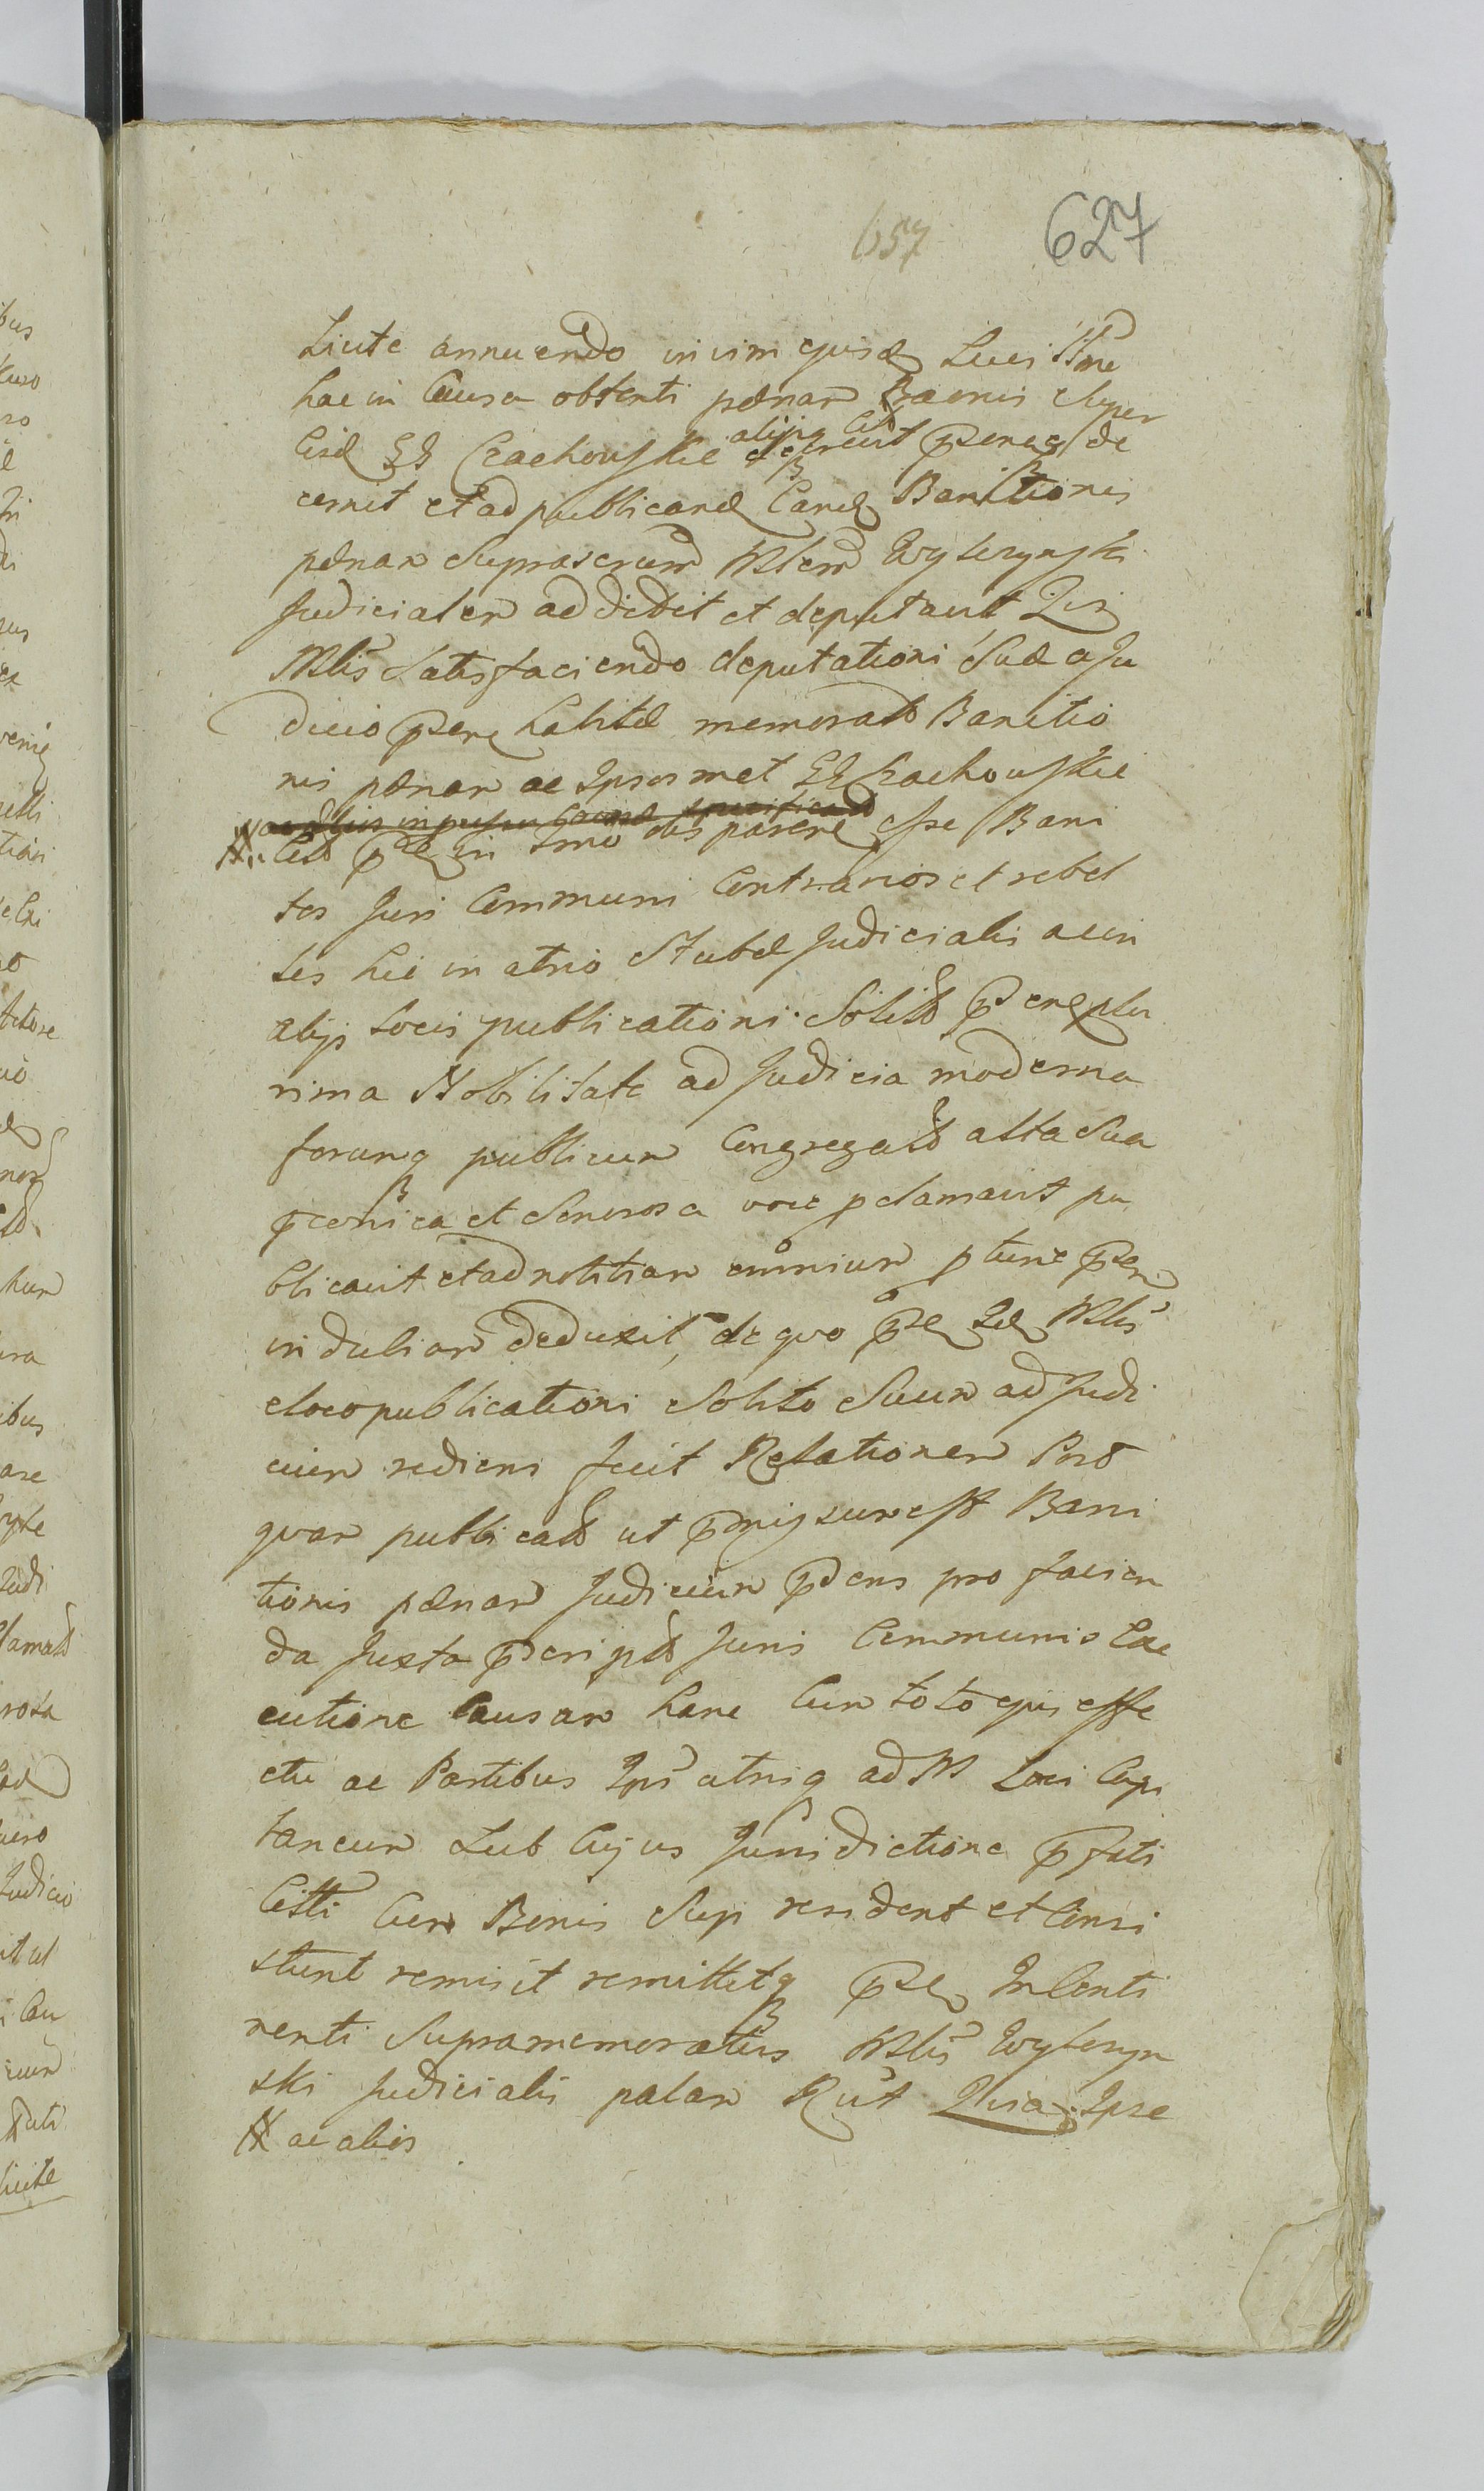 657 627
Licite annuendo in vim ejusd Luci
hac in Causa obtenti pænam Baenis super
Eisd GG Czachowskie alijsq Cittis decrevit pserq de
cernit et ad publicand Eand Banitionis
pænam suprascrum Mlem Wylezynski
Judicialem addidit et deputavit Qui
Mlis satisfaciendo deputationi suæ a Ju
dicio psen habitæ memoratt Banitio
nis pænam ac Ipsosmet GG Czachowskie
Citt in Imo parere esse Bani
tos Juri Communi Contrarios et rebel
les hic in atrio Stubæ Judicialis ac in
alijs locis publicationi solitt plu
rima Nobilitate ad Judicia moderna
forumq publicum Congregatt alta sua
pconica et sonorosa voce pclamavit pu
blicavit et ad notitiam omnium ptunc psen
indubiam deduxit, de quo Mlis
e loco publicationi solito suum ad Judi
cium rediens fecit Relationem Post
quam publicatt ut pmissum est Bani
tionis pænam Judicium pdens pro facien
da Juxta pscriptt Juris Communis Exe
cutione Causam hanc Cum toto ejus effe
ctu ac Partibus Ipis utrisq ad M Loci Capi
taneum sub Cujus Jurisdictione pfati
Citti Cum Bonis suis resident et Consi
stunt remisit remittitq In Conti
nenti supramemoratus Mlis Wylezyn
ski Judicialis palam Rcit Quia Ipse
ac alios